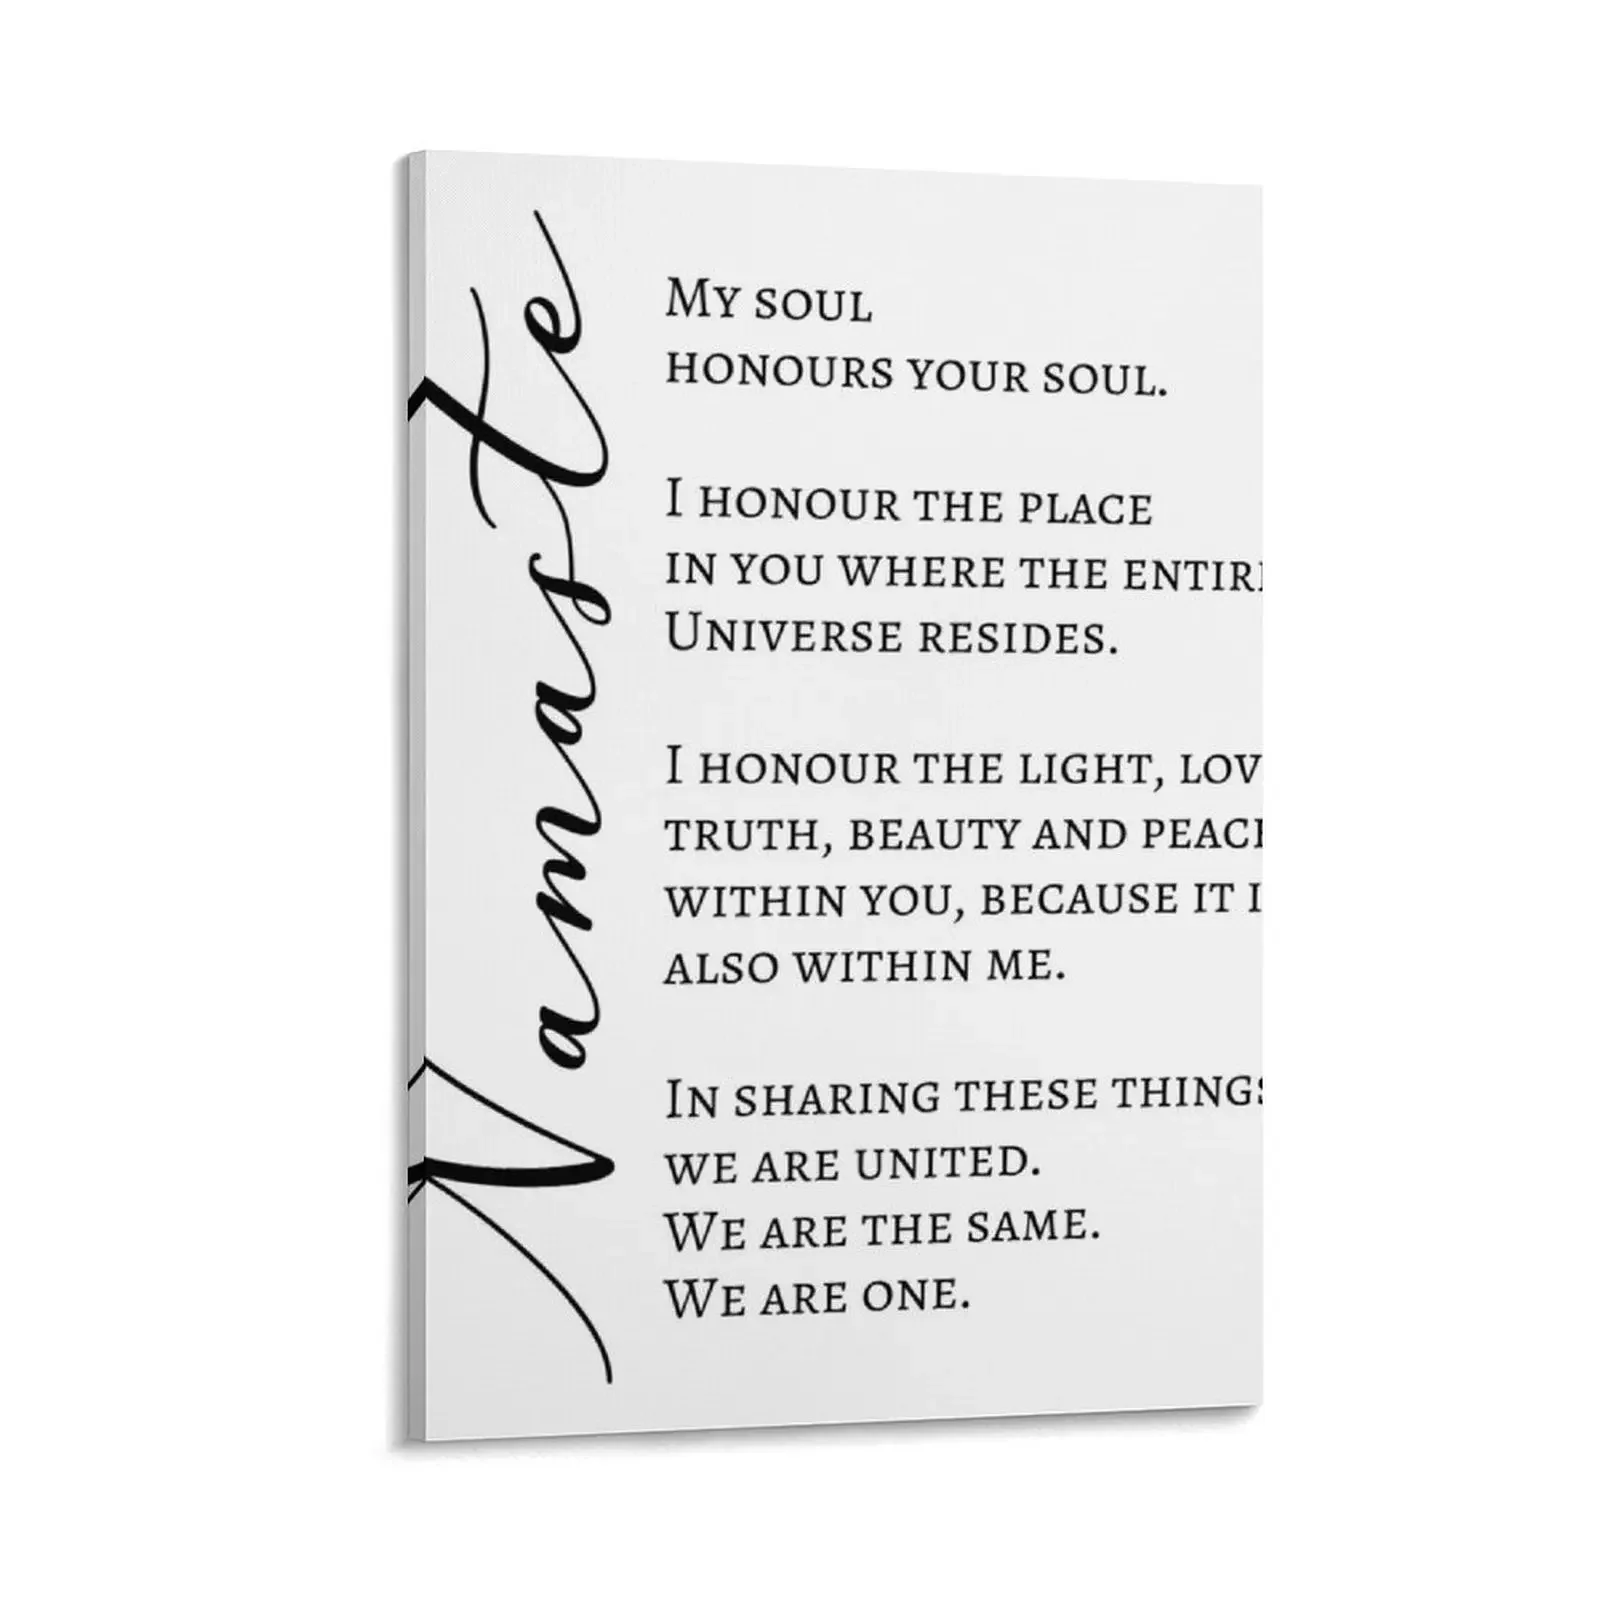 Namaste
My soul
honours your soul.
I honour the place
in you where the entire
Universe resides.
I honour the light, lov
truth, beauty and peace
within you, because it i
also within me.
In sharing these things
we are united.
We are the same.
We are one.